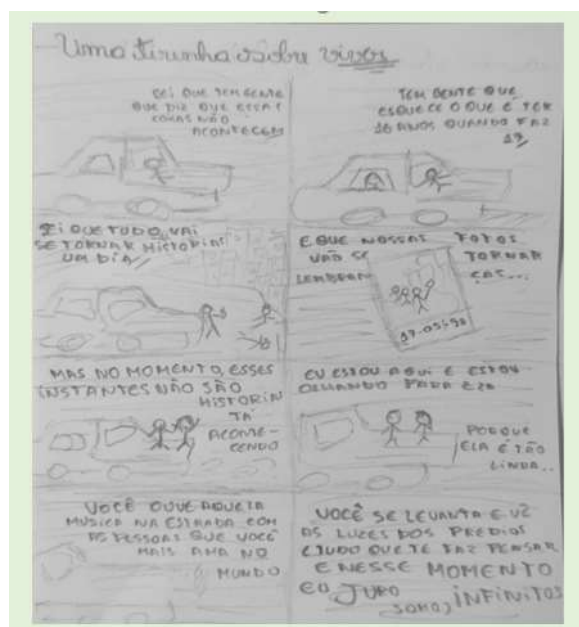 Uma tirinha sobre viver
SEI QUE TEM GENTE
QUE DIZ QUE ESSAS
COISAS NÃO
ACONTECEM
TEM GENTE QUE
ESQUECE O QUE É TER
16 ANOS QUANDO FAZ
17
SEI QUE TUDO VAI
SE TORNAR HISTORIAS
UM DIA
E QUE NOSSAS FOTOS
VÃO SE TORNAR
LEMBRANÇAS...
17-05-90
MAS NO MOMENTO, ESSES
INSTANTES NÃO SÃO
HISTORIA
TÁ
ACONTE-
CENDO
EU ESTOU AQUI E ESTOU
OLHANDO PARA ELA
PORQUE
ELA É TÃO
LINDA..
VOCÊ OUVE AQUELA
MUSICA NA ESTRADA COM
AS PESSOAS QUE VOCÊ
MAIS AMA NO
MUNDO
VOCÊ SE LEVANTA E VÊ
AS LUZES DOS PREDIOS
E TUDO QUE TE FAZ PENSAR
E NESSE MOMENTO
EU JURO
SOMOS INFINITOS